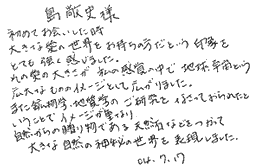 島 敞史 様
初めてお会いした時
大きな愛の世界をお持ちの方だという印象を
とても強く感じました。
その愛の大きさが、私の感覚の中で地球、宇宙という
広大なもののイメージとして広がりました。
また鉱物学、地質学のご研究をなさっておられたと
いうことでイメージが重なり
自然からの贈り物である天然石などをつかって
大きな自然の神秘的世界を表現しました。
04.7.17